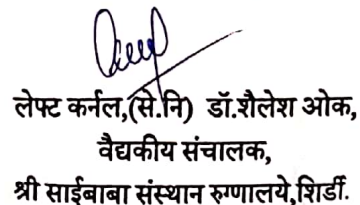 लेफ्ट कर्नल,(से.नि) डॉ.शैलेश ओक,
वैद्यकीय संचालक,
श्री साईबाबा संस्थान रुग्णालये,शिर्डी.